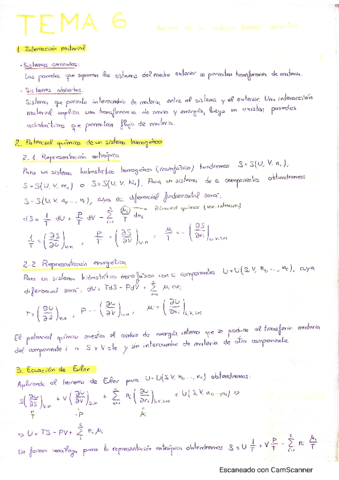 TEMA 6
1. Interacción material
- Sistemas cerrados.
Las paredes que separan los sistemas del medio exterior no permiten transferencia de materia.
- Sistemas abiertos.
Sistema que permite intercambio de materia entre el sistema y el exterior. Una interacción
material implica una transferencia de masa y energía, luego no existen paredes
adiabáticas que permitan flujo de materia.
2. Potencial químico de un sistema homogéneo
2.1. Representación entrópica
Para un sistema hidrostático homogéneo (monofásico) tendremos S = S(U, V, n),
S = S(U, V, m) o S = S(U, V, N). Para un sistema de c componentes obtendremos
S = S(U, V, n₁, ..., nc), cuya ec. diferencial fundamental será:
dS = 1/T dU + P/T dV - Σ μi/T dni → Potencial químico (var. intensiva)
1/T = (∂S/∂U)V,n , P/T = (∂S/∂V)U,n , μi/T = - (∂S/∂ni)U,V,n
2.2. Representación energética
Para un sistema hidrostático monofásico con c componentes U = U(S, V, n₁, ..., nc), cuya
diferencial será: dU = TdS - PdV + Σ μi dni
T = (∂U/∂S)V,n , P = - (∂U/∂V)S,n , μi = (∂U/∂ni)S,V,n
El potencial químico muestra el cambio de energía interna que se produce al transferir materia
del componente i a S y V = cte y sin intercambio de materia de otro componente.
3. Ecuación de Euler
Aplicando el teorema de Euler para U = U(S, V, n₁, ..., nc) obtendremos:
S(∂U/∂S)V,n + V(∂U/∂V)S,n + Σ ni(∂U/∂ni)S,V,n = U(S, V, n₁, ..., nc) ⇒
T -P μi
⇒ U = TS - PV + Σ ni μi
De forma análoga para la representación entrópica obtendremos S = U 1/T + V P/T - Σ ni μi/T
Escaneado con CamScanner